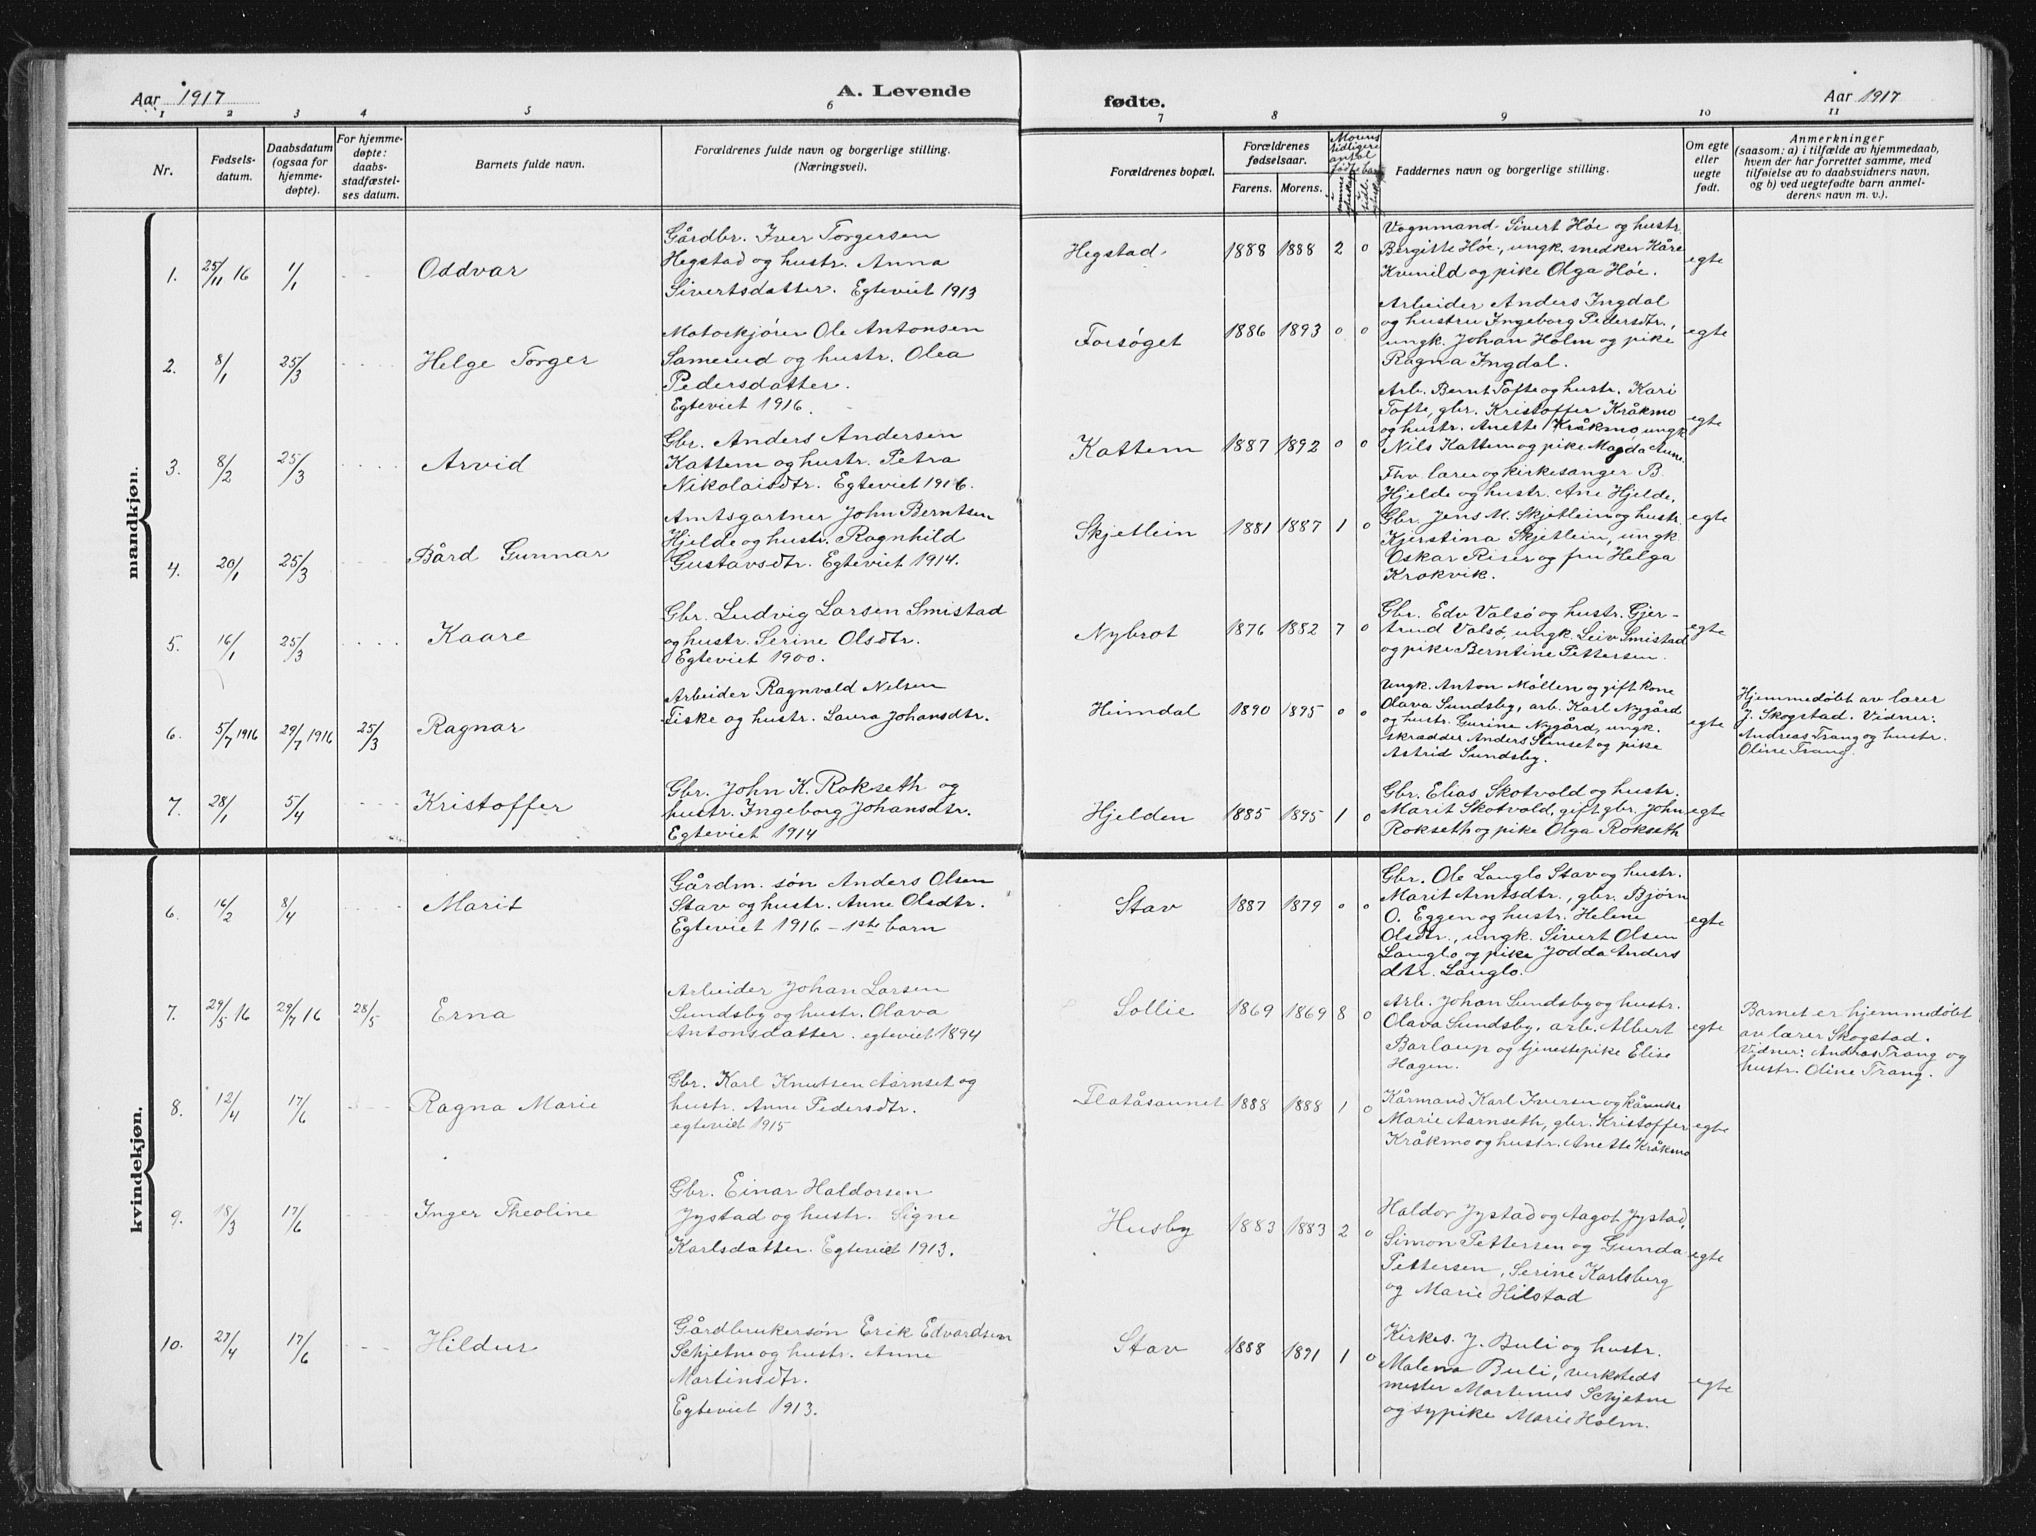 Aar 1917
A. Levende
fødte.
Aar 1917
1 2 3 4 5 6 7 8 9 10 11
Nr.
Fødsels-
datum.
Daabsdatum
(ogsaa for
hjemme-
døpte).
For hjemme-
døpte:
daabs-
stadfæstel-
ses datum.
Barnets fulde navn.
Forældrenes fulde navn og borgerlige stilling.
(Næringsvei).
Forældrenes bopæl.
Forældrenes
fødselsaar.
Farens. Morens.
Morens
tidligere
antal
Faddernes navn og borgerlige stilling.
Om egte
eller
uegte
født.
Anmerkninger
(saasom: a) i tilfælde av hjemmedaab,
hvem der har forrettet samme, med
tilføielse av to daabsvidners navn,
og b) ved uegtefødte barn anmel-
derens navn m. v.).
mandkjøn.
1. 25/11 16 1/1 Oddvar
Gårdbr. Iver Torgersen
Hegstad og hustr. Anna
Sivertsdatter. Egteviet 1913
Hegstad 1888 1888 2 0
Vognmand Sivert Høe og hustr.
Bergitte Høe, ungk. snedker Kåre
Kvenild og pike Olga Høe.
egte
2. 8/1 25/3 Helge Torger
Motorkjører Ole Antonsen
Samerud og hustr. Olea
Pedersdatter.
Egteviet 1916.
Forsøget 1886 1893 0 0
Arbeider Anders Ingdal
og hustru Ingeborg Pedersdtr.,
ungk. Johan Holm og pike
Ragna Ingdal.
egte
3. 8/2 25/3 Arvid
Gbr. Anders Andersen
Kattem og hustr. Petra
Nikolaisdtr. Egteviet 1916.
Kattem 1887 1892 0 0
Arb. Bernt Tofte og hustr. Kari
Tofte, gbr. Kristoffer Kråkmo
og hustr. Anette Kråkmo, ungk.
Nils Kattem og pike Magda Aune.
egte
4. 20/1 25/3 Bård Gunnar
Amtsgartner John Berntsen
Hjelde og hustr. Ragnhild
Gustavsdtr. Egteviet 1914.
Skjetlein 1881 1887 1 0
Fhv. lærer og kirkesanger B.
Hjelde og hustr. Ane Hjelde,
Gbr. Jens M. Skjetlein og hustr.
Kjerstina Skjetlein, ungk.
Oskar Riser og fru Helga
Krokvik.
egte
5. 16/1 25/3 Kaare
Gbr. Ludvig Larsen Smistad
og hustr. Serine Olsdtr.
Egteviet 1900.
Nybrot 1876 1882 7 0
Gbr. Edv Valsø og hustr. Gjer-
trud Valsø, ungk. Leiv Smistad
og pike Berntine Pettersen.
egte
6. 5/7 1916 29/7 1916 25/3 Ragnar
Arbeider Ragnvald Nelsen
Fiske og hustr. Laura Johansdtr.
Heimdal 1890 1895 0 0
Ungk. Anton Møllen og gift kone
Olava Sundsby, arb. Karl Nygård
og hustr. Gurine Nygård, ungk.
skrædder Anders Stenset og pike
Astrid Sundsby.
egte
Hjemmedøbt av lærer
J. Skogstad. Vidner:
Andreas Trang og hustr.
Oline Trang.
7. 28/1 5/4 Kristoffer
Gbr. John K. Rokseth og
hustr. Ingeborg Johansdtr.
Egteviet 1914
Hjelden 1885 1895 1 0
Gbr. Elias Skotvold og hustr.
Marit Skotvold, gift gbr. John
Rokseth og pike Olga Rokseth
egte
kvindekjøn.
6. 16/2 8/4 Marit
Gårdm. søn Anders Olsen
Stav og hustr. Anne Olsdtr.
Egteviet 1916 - 1ste barn
Stav 1887 1879 0 0
Gbr. Ole Langlo Stav og hustr.
Marit Arntsdtr., gbr. Bjørn
O. Eggen og hustr. Helene
Olsdtr., ungk. Sivert Olsen
Langlo og pike Jodda Anders
dtr. Langlo.
egte
7. 29/5 16 29/7 16 28/5 Erna
Arbeider Johan Larsen
Sundsby og hustr. Olava
Antonsdatter. egteviet 1894
Sollie 1869 1869 8 0
Arb. Johan Sundsby og hustr.
Olava Sundsby, arb. Albert
Barlaup og tjenestepike Elise
Hagen.
egte
Barnet er hjemmedøbt
av lærer Skogstad.
Vidner: Andras Trang og
hustr. Oline Trang.
8. 12/4 17/6 Ragna Marie
Gbr. Karl Knutsen Aarnset og
hustr. Anne Pedersdtr.
egteviet 1915
Flatåsaunet 1888 1888 1 0
Kårmand Karl Iversen og
Marie Aarnseth, gbr. Kristoffer
Kråkmo og hustr. Anette Kråkmo
egte
9. 18/3 17/6 Inger Theoline
Gbr. Einar Haldorsen
Jystad og hustr. Signe
Karlsdatter. Egteviet 1913.
Husby 1883 1883 2 0
Haldor Jystad og Aagot Jystad,
Simon Pettersen og Gunda
Pettersen, Serine Karlsberg
og Marie Hilstad
egte
10. 27/4 17/6 Hildur
Gårdbrukersøn Erik Edvardsen
Schjetne og hustr. Anne
Martinsdtr.
Egteviet 1913.
Stav 1888 1891 1 0
Kirkes. J. Buli og hustr.
Malena Buli, verksteds
mester Martinus Schjetne
og sypike Marie Holm.
egte